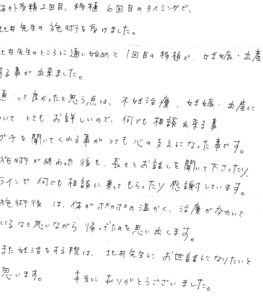 体外受精2回目、移植6回目のタイミングで、
北井先生の施術を受けました。
北井先生のところに通い始めて1回目の移植で、妊娠・出産
する事が出来ました。
通って良かったと思う点は、不妊治療、妊娠・出産に
ついてとてもお詳しいので、何でも相談出来る事
グチを聞いてくれる事がとても心の支えになった事です。
施術が終わった後も、長々とお話しを聞いて下さったり、
ラインで何でも相談に乗ってもらったり感謝しています。
施術後は、体がポカポカ温かく、治療が効いて
いるなと思いながら帰ってたのを思い出します。
また妊活をする際は、北井先生にお世話になりたいと
思います。 本当にありがとうございました。